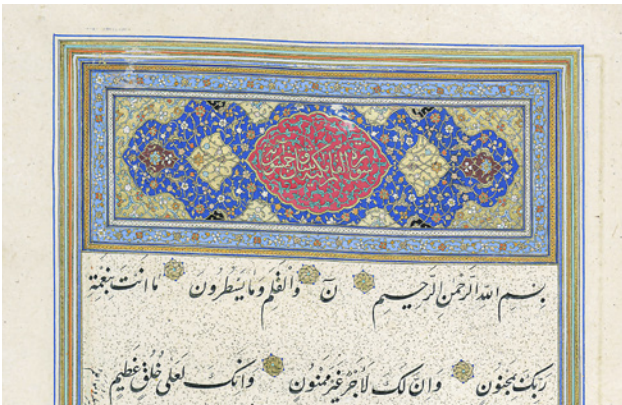 سورة القلم
بسم الله الرحمن الرحيم ن والقلم وما يسطرون ما انت بنعمة
ربك بمجنون وان لك لاجرا غير ممنون وانك لعلى خلق عظيم